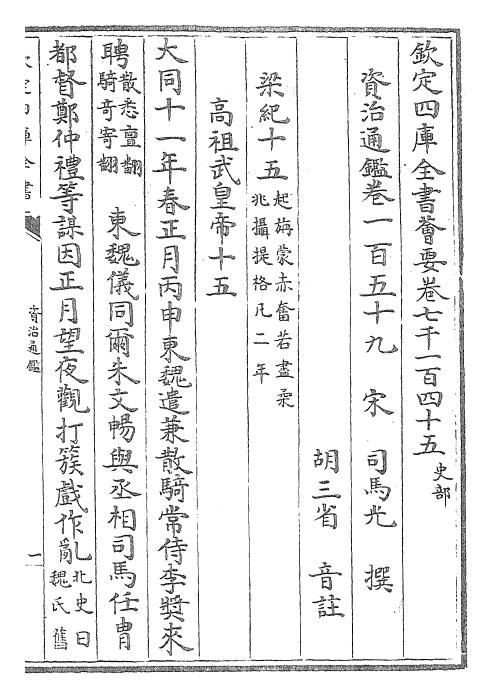 欽定四庫全書薈要卷七千一百四十五 史部
資治通鑑卷一百五十九 宋 司馬光 撰
胡三省 音註
梁紀十五 起旃蒙赤奮若盡柔兆攝提格凡二年
高祖武皇帝十五
大同十一年春正月丙申東魏遣兼散騎常侍李奬來
聘 散悉亶翻騎奇寄翻 東魏儀同爾朱文暢與丞相司馬任冑
都督鄭仲禮等謀因正月望夜觀打簇戲作亂 北史曰魏氏舊
資治通鑑
一